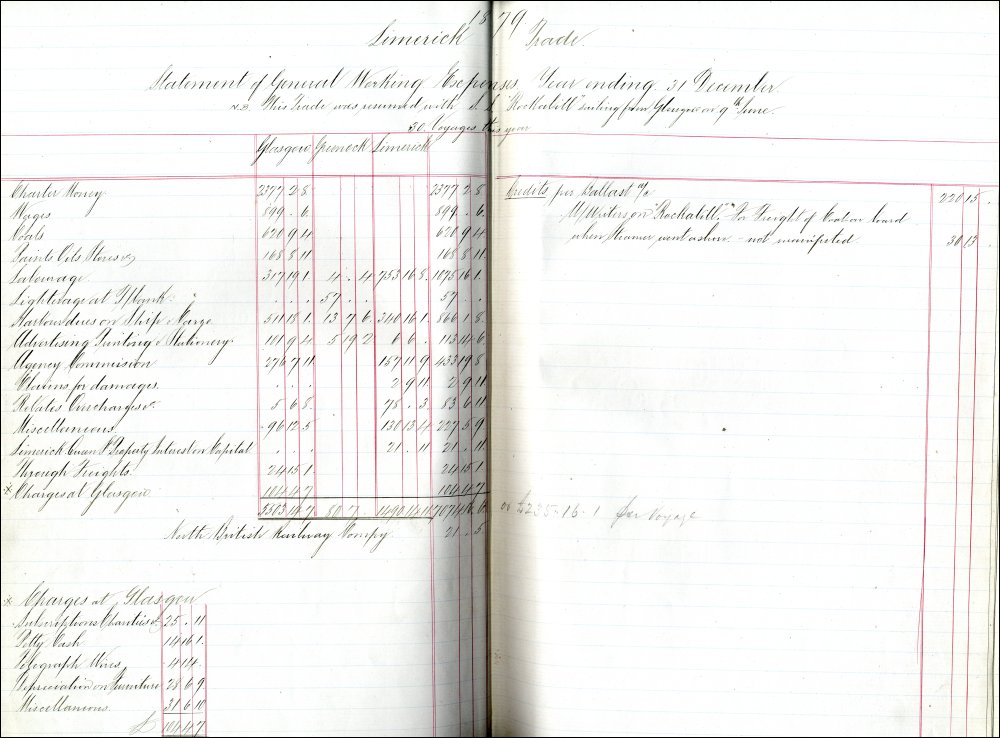 1879
Limerick Trade.
Statement of General Working Expenses Year ending 31 December
N.B. This Trade was resumed with S.S. "Rockabill" sailing from Glasgow on 9th June.
30 Voyages this year
Glasgow Greenock Limerick
Charter Money 2377 2 8 2377 2 8
Wages 899 . 6 899 . 6
Coals 620 9 4 620 9 4
Paints Oils Stores &c 168 8 11 168 8 11
Labourage 317 19 1 4 . 4 753 16 8 1075 16 1
Lighterage at . . . 57 . . 57 . .
Harbour dues on Ship & Cargo 511 18 1 13 7 6 340 16 1 866 1 8
Advertising Printing & Stationery 101 9 4 5 19 2 6 6 . 113 14 6
Agency Commission 276 7 11 157 11 9 433 19 8
Claims for damages . . . 2 9 11 2 9 11
Rebates Overcharges &c 5 6 8 78 . 3 83 6 11
Miscellaneous 96 12 5 130 13 4 227 5 9
Limerick Property Interest on Capital . . . 21 . 11 21 . 11
Through Freights 24 15 1 24 15 1
* Charges at Glasgow 104 4 7 104 4 7
5503 14 7 80 7 . 1490 14 11 7074 16 6 or £235.16.1 per Voyage
North British Railway Compy. 21 . 5
* Charges at Glasgow
Subscriptions Charities &c 25 . 11
Petty Cash 14 16 1
Telegraph Wires 4 14 .
Depreciation on Furniture 28 6 9
Miscellaneous 31 6 10
£ 104 4 7
Credits per Ballast a/c 220 15 .
U/Writers on "Rockabill" for Freight of on board
when Steamer went ashore - not manifested 30 15 .